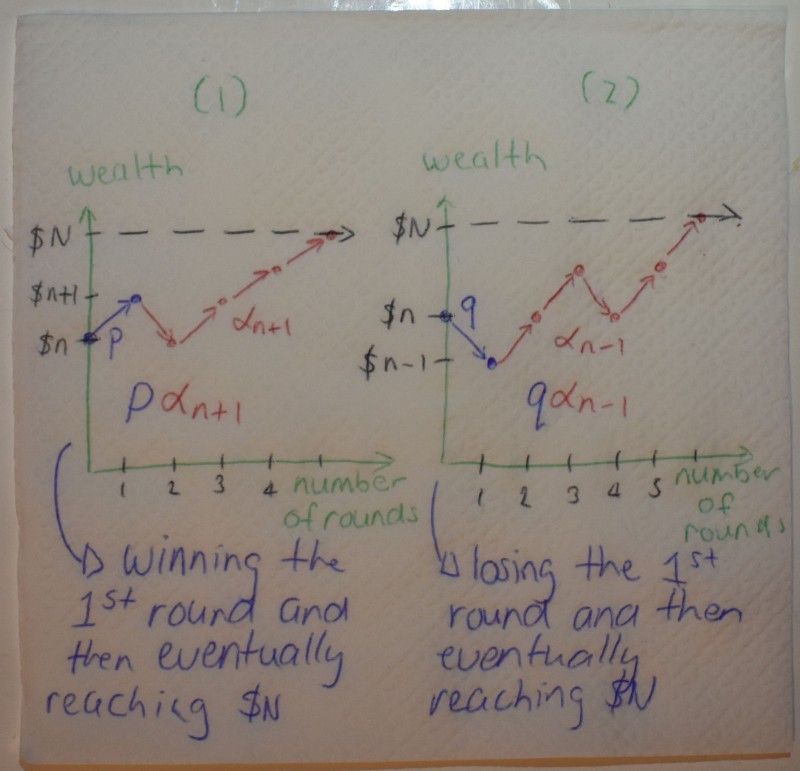 (1)
wealth
$N
$n+1
$n
p
αn+1
pαn+1
1 2 3 4 number
of rounds
winning the
1st round and
then eventually
reaching $N
(2)
wealth
$N
$n
q
$n-1
αn-1
qαn-1
1 2 3 4 5 number
of
rounds
losing the 1st
round and then
eventually
reaching $N